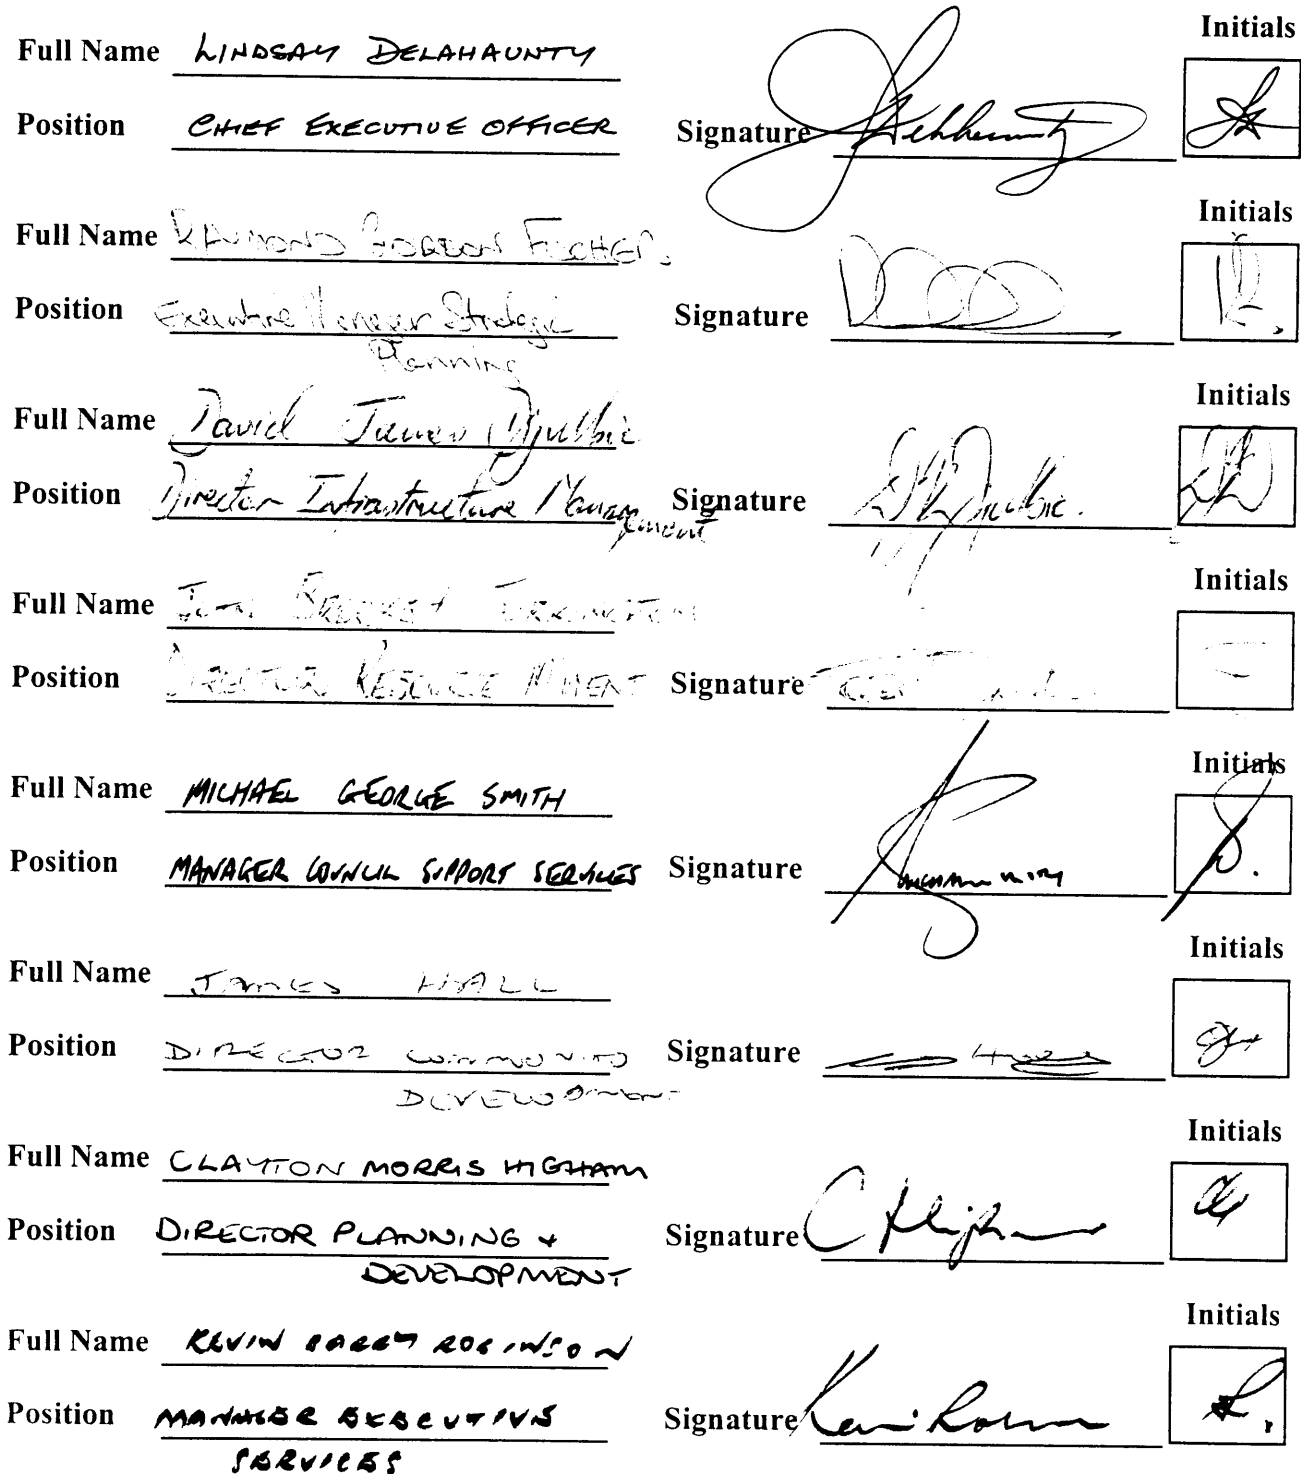 Initials
Full Name LINDSAY DELAHAUNTY
Position CHIEF EXECUTIVE OFFICER Signature
Initials
Full Name RAYMOND GORDON FISCHER.
Position Executive Manager Strategic Signature
Planning
Initials
Full Name David James Djulbic
Position Director Infrastructure Manag Signature
ement
Initials
Full Name JOHN
Position DIRECTOR RESOURCE M'MENT Signature
Initials
Full Name MICHAEL GEORGE SMITH
Position MANAGER COUNCIL SUPPORT SERVICES Signature
Initials
Full Name JAMES HALL
Position DIRECTOR COMMUNITY Signature
DEVELOPMENT
Initials
Full Name CLAYTON MORRIS HIGHAM
Position DIRECTOR PLANNING + Signature
DEVELOPMENT
Initials
Full Name KEVIN BARRY ROBINSON
Position MANAGER EXECUTIVE Signature
SERVICES